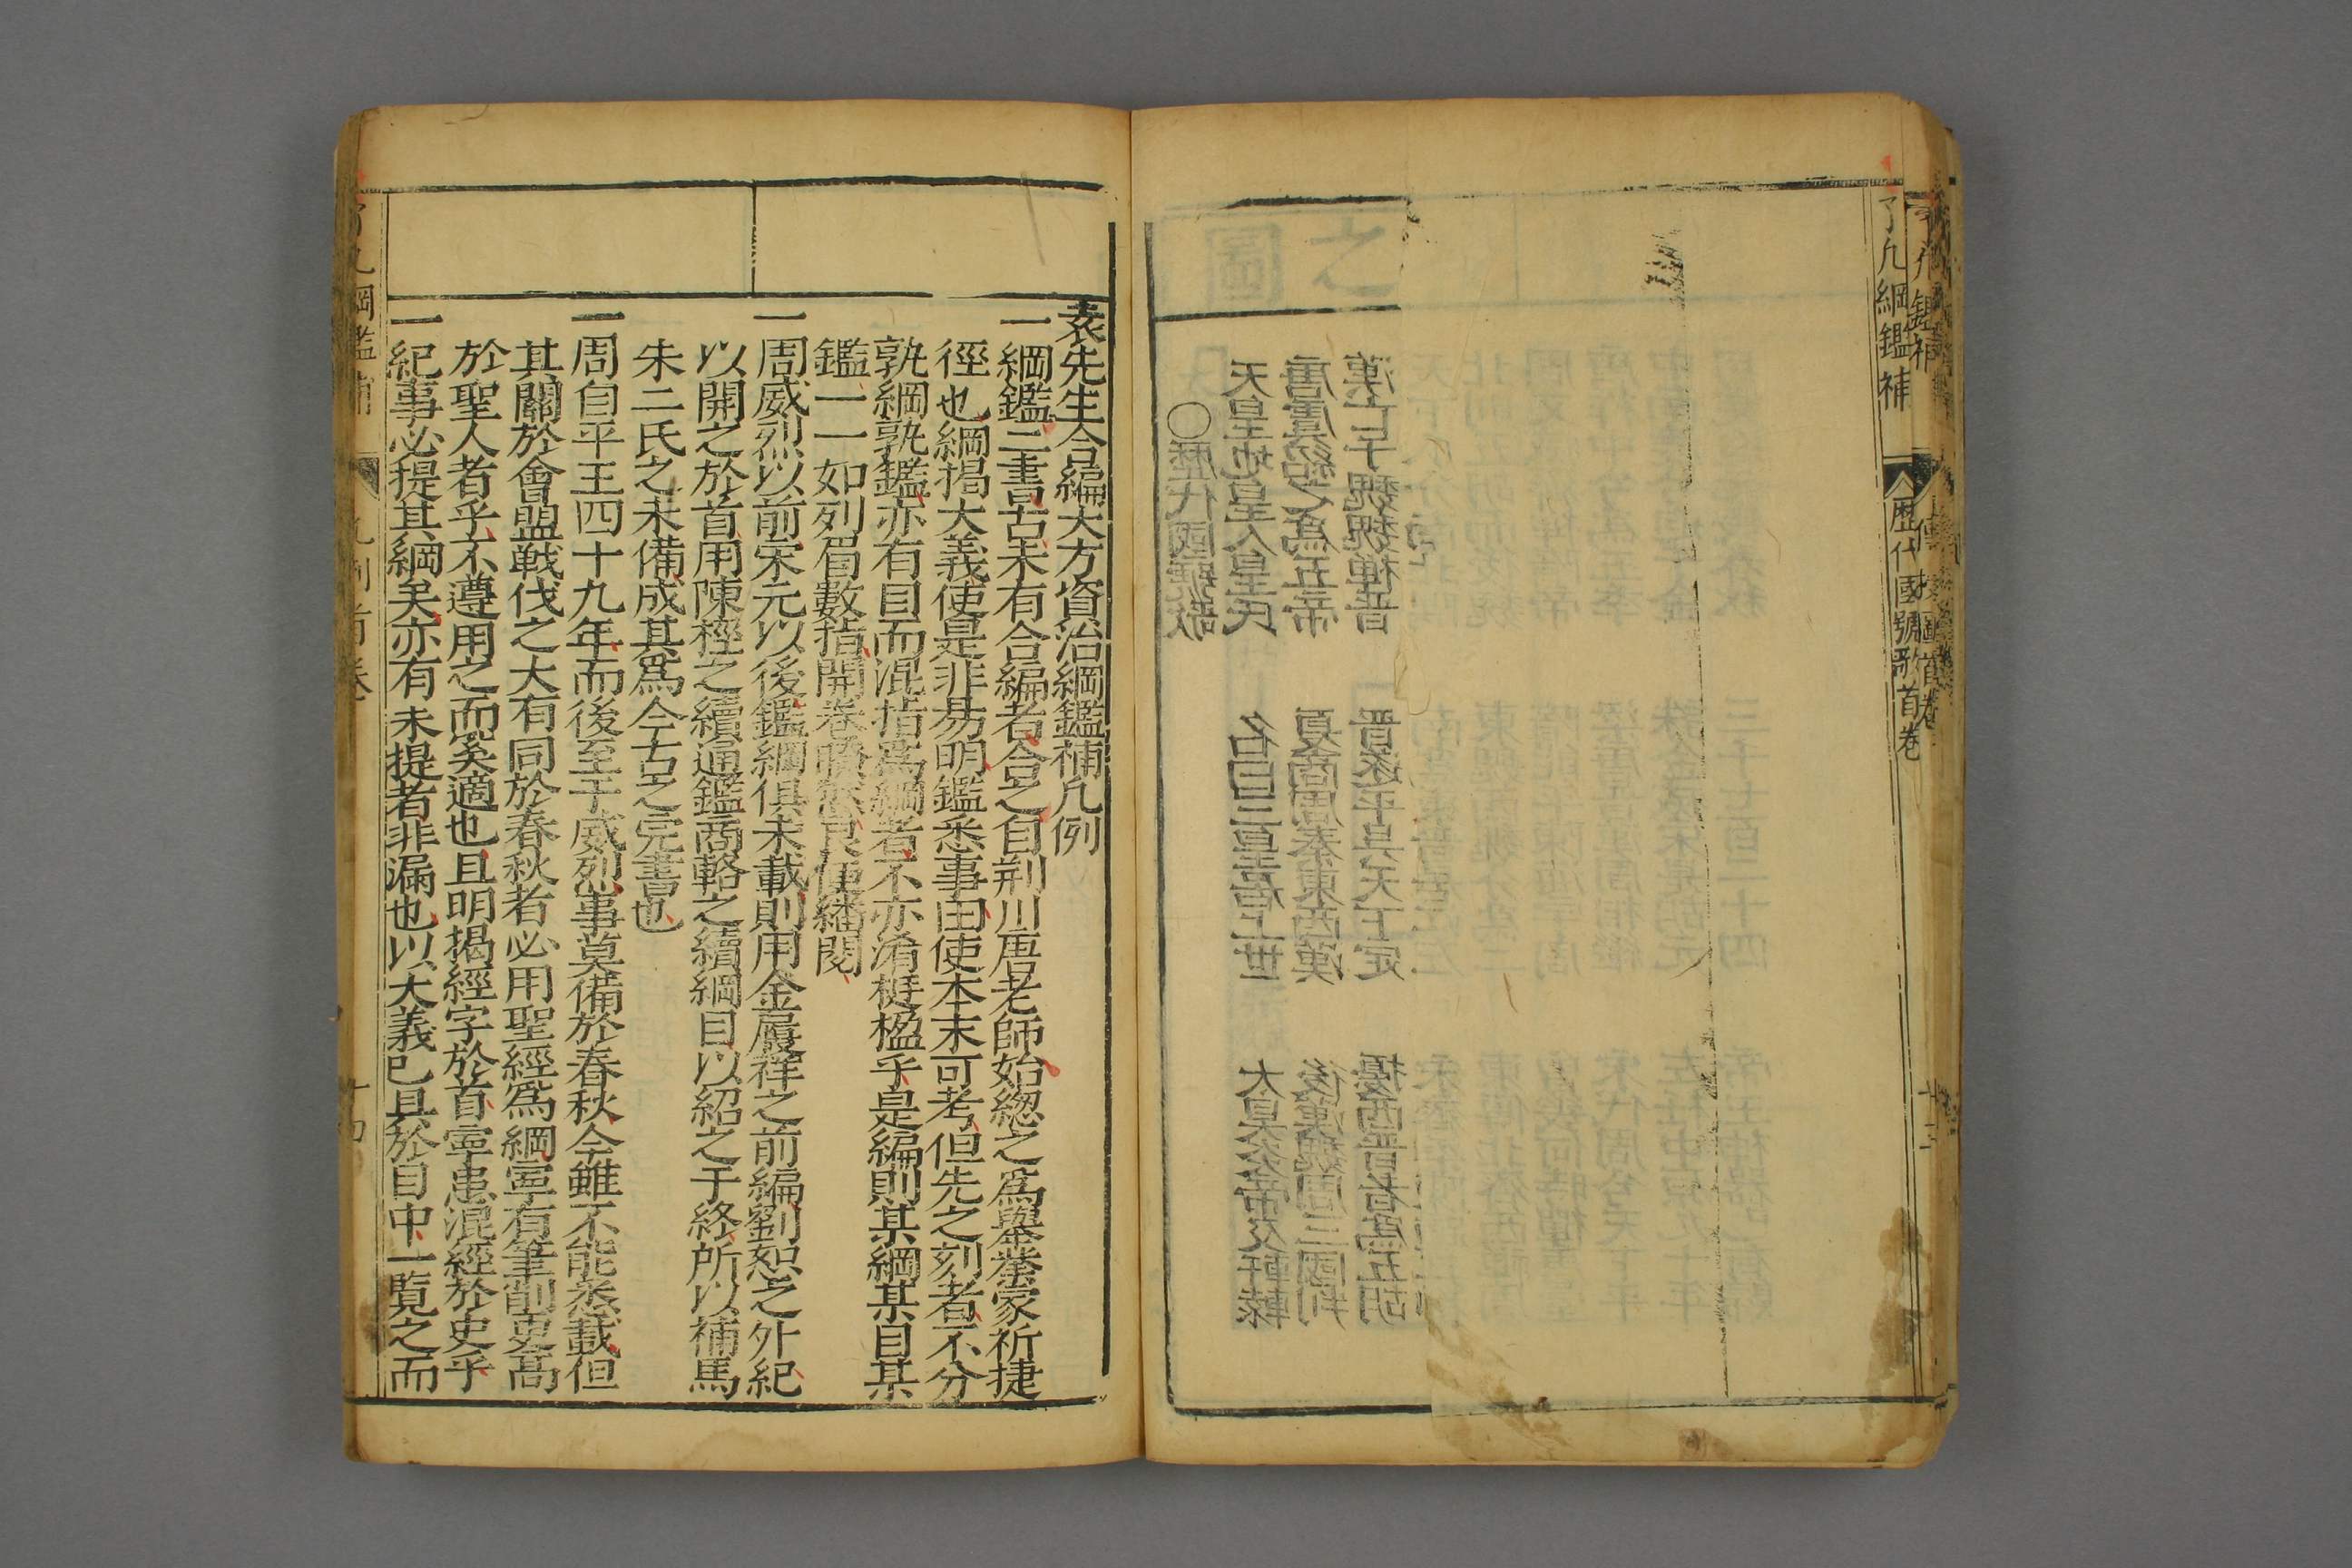 了凡綱鑑補
歷代國號歌首卷
之圖
○歷代國號歌
天皇地皇人皇氏 名曰三皇居上世 太昊炎帝及軒轅
唐虞紹之爲五帝 夏商周秦東西漢 後漢魏吳三國判
漢亡于魏魏禪晋 晋遂平吳天下定 擾西晋者爲五胡
袁先生合編大方資治綱鑑補凡例
一綱鑑二書古未有合編者合之自荆川唐老師始緫之爲舉業家祈捷
徑也綱揭大義使是非昜明鑑悉事由使本末可考但先之刻者不分
孰綱孰鑑亦有目而混指爲綱者不亦淆梃楹乎是編則某綱某目某
鑑一一如列眉數指開卷瞭然良便繙閱
一周威烈以前宋元以後鑑綱俱未載則用金履祥之前編劉恕之外紀
以開之於首用陳桱之續通鑑商輅之續綱目以紹之于終所以補馬
朱二氏之未備成其爲今古之完書也
一周自平王四十九年而後至于威烈事莫備於春秋今雖不能悉載但
其關於會盟戰伐之大有同於春秋者必用聖經爲綱寕有筆削叓高
於聖人者乎不遵用之而奚適也且明揭經字於首寕患混經於史乎
一紀事必提其綱矣亦有未提者非漏也以大義已具於目中一覧之而
了凡綱鑑補 凡例首卷 十四